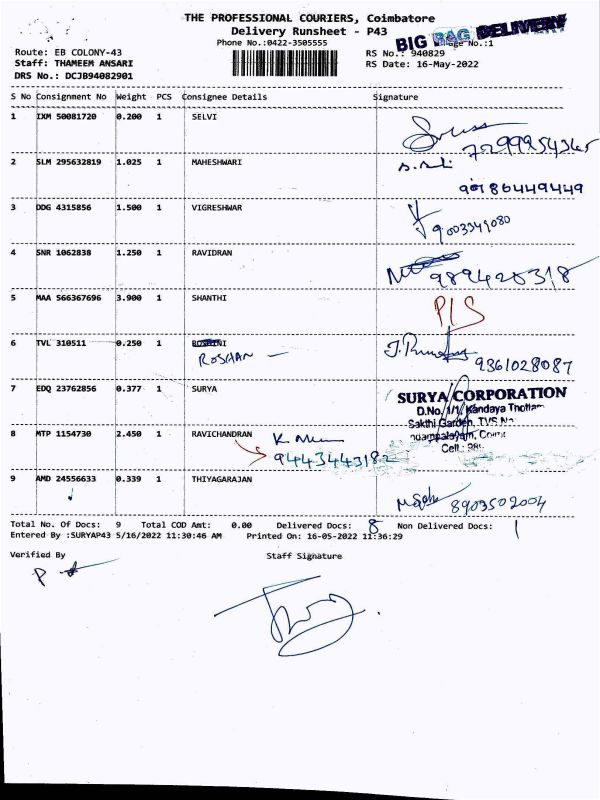 THE PROFESSIONAL COURIERS, Coimbatore
Delivery Runsheet - P43
Phone No.:0422-3505555
BIG BAG DELIVERY
Page No.:1
Route: EB COLONY-43
RS No.: 940829
Staff: THAMEEM ANSARI
RS Date: 16-May-2022
DRS No.: DCJB94082901
S No Consignment No Weight PCS Consignee Details Signature
1 IXM 50081720 0.200 1 SELVI
7299254365
2 SLM 295632819 1.025 1 MAHESHWARI
9786449449
3 DDG 4315856 1.500 1 VIGRESHWAR
9003349080
4 SNR 1062838 1.250 1 RAVIDRAN
989425318
5 MAA 566367696 3.900 1 SHANTHI P/S
6 TVL 310511 0.250 1
ROSHAN
9361028087
7 EDQ 23762856 0.377 1 SURYA
SURYA CORPORATION
D.No. 1/1, Kandaya Thottam
Sakthi Garden, TVS N
Cell : 98
8 MTP 1154730 2.450 1 RAVICHANDRAN
9443443182
9 AMD 24556633 0.339 1 THIYAGARAJAN
8903502004
Total No. Of Docs: 9 Total COD Amt: 0.00 Delivered Docs: 8 Non Delivered Docs: 1
Entered By :SURYAP43 5/16/2022 11:30:46 AM Printed On: 16-05-2022 11:36:29
Verified By Staff Signature